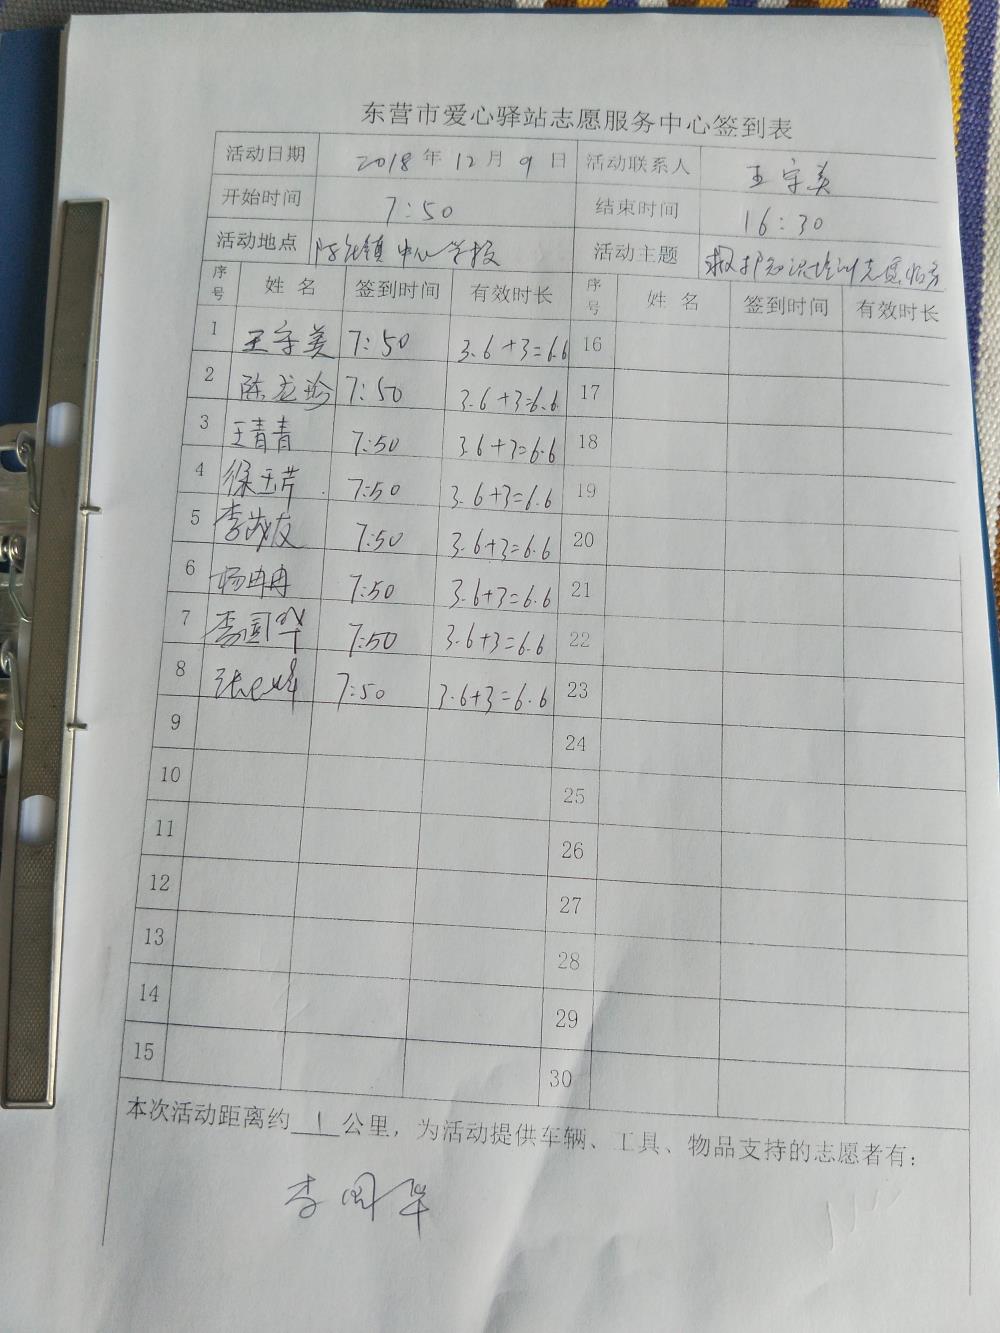 东营市爱心驿站志愿服务中心签到表
活动日期 2018年12月9日 活动联系人 王守美
开始时间 7:50 结束时间 16:30
活动地点 陈庄镇中心学校 活动主题 救护知识培训志愿服务
序号 姓名 签到时间 有效时长 序号 姓名 签到时间 有效时长
1 王守美 7:50 3.6+3=6.6 16
2 陈龙珍 7:50 3.6+3=6.6 17
3 王青青 7:50 3.6+3=6.6 18
4 徐玉芹 7:50 3.6+3=6.6 19
5 李茂友 7:50 3.6+3=6.6 20
6 杨冉冉 7:50 3.6+3=6.6 21
7 李国华 7:50 3.6+3=6.6 22
8 7:50 3.6+3=6.6 23
9 24
10 25
11 26
12 27
13 28
14 29
15 30
本次活动距离约1公里，为活动提供车辆、工具、物品支持的志愿者有：
李国华